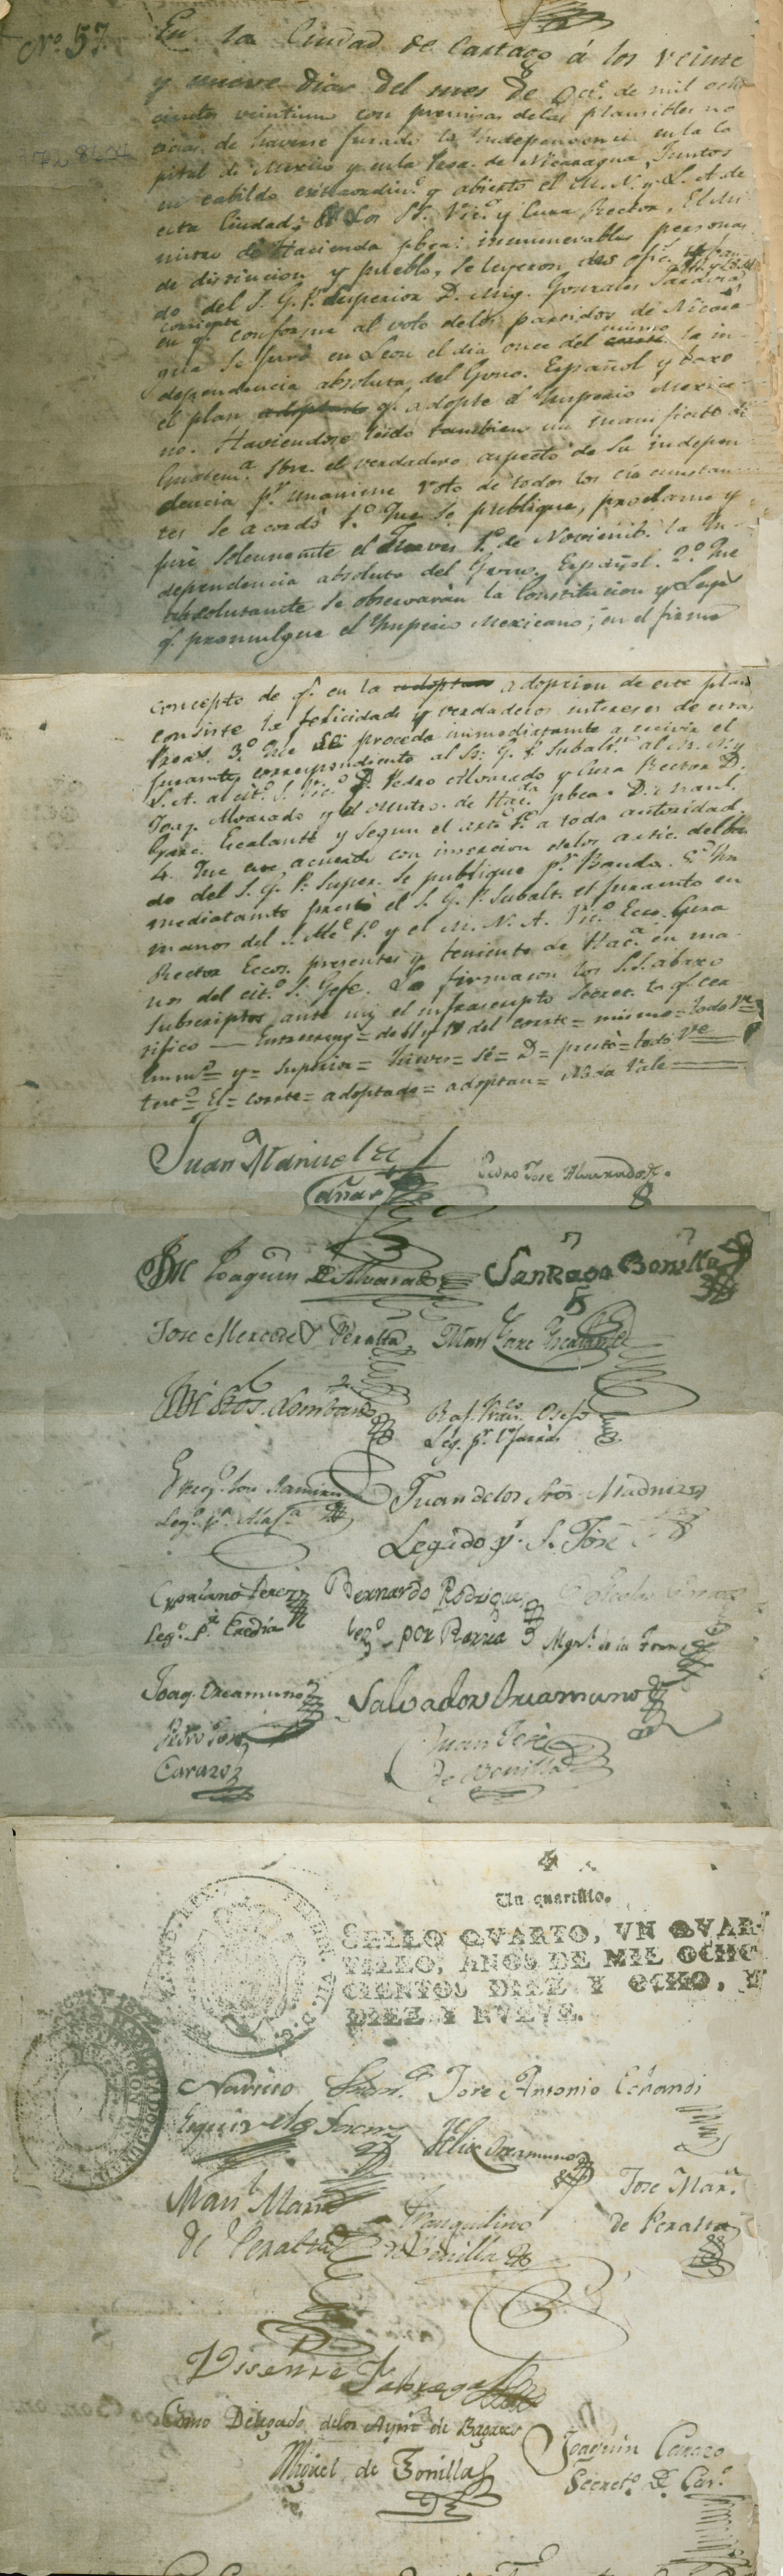 Nº. 57.
En la Ciudad de Cartago á los veinte
y nueve dias del mes de Oct.e de mil ocho
cientos veintiuno con premisas delas plausibles no
ticias de haverse jurado la Independencia en la Ca
pital de Mexico y en la Prov.a de Nicaragua, Juntos
en cabildo extraordin.o y abierto el M. N. y L. A. de
esta Ciudad, los SS. Vic.o y Cura Rector, El Mi
nistro de Hacienda pbca: innumerables personas
de distincion y pueblo, se leyeron dos ofic.s
do del S. G. P. Superior D. Mig. Gonzales Saravia
corriente
en q.e conforme al voto delos partidos de Nicara
mismo
gua se juró en Leon el dia once del la in
dependencia absoluta del Govno. Español y baxo
el plan adoptado q.e adopte el Imperio Mexica
no. Haviendose leido tambien un manifiesto de
Guatem.a sbre. el verdadero aspecto de su indepen
dencia p.r unanime voto de todos los circunstan
tes se acordó 1.o Que se publique, proclame y
jure solemnem.te el Jueves 1.o de Noviemb.e la In
dependencia absoluta del Govno. Español. 2.o Que
absolutamte se observarán la Constitucion y Leyes
q.e promulgue el Ymperio Mexicano, en el firme
concepto de q.e en la adoptan adopcion de este plan
consiste la felicidad y verdaderos intereses de estas
Provas. 3.o Que se proceda inmediatamte a recivir el
juramto. correspondiente al Sr. G. P. Subalt.no al M. N. y
L. A. al cit.o S. Vic.o D. Pedro Alvarado y Cura Rector D.
Joaq. Alvarado y el Mntro. de Hac.da pbca. D. Manl.
Garc. Escalante y segun el arto. 1.o a toda autoridad.
4. Que este acuerdo con insercion delos artic. del ban
do del S. G. P. Super. se publique p.r Bando. 5.o Yn
mediatamte prestó el S. G. P. Subalt. el juramto en
manos del S. Alc.e 1.o y el M. N. A. Vic.o Ecco. Cura
Rector Eccos. presentes y teniente de Hac.a en ma
nos del cit.o S. Gefe. Lo firmaron los S.S. abaxo
subscriptos ante mi el infrascripto Secret. to q.e cer
tifico — Entrerreng.s = del corrte = mismo = todo Ve =
Enmdo = y = Superior = Jueves = Sé = D = prestó = todo Ve
testo = El = corrte = adoptado = adoptan = Nada Vale
Juan Manuel de
Cañas
Pedro Jose Alvarado
Joaquin de Alvarado Santiago Bonilla
Jose Mercedes Peralta Man.l Garc. Escalante
Stos. Lombardo Raf. Franco. Osejo
Leg. p.r Ujarras
Greg.o Jose Ramirez Juan delos Stos. Madriz
Leg.o p.r Alaj.a Legado p.r S. José
Cypriano Perez Bernardo Rodrigue
Leg.o p.r Eredia Leg.o por Barua Mgn.l de la Torre
Joaq. Oreamuno Salvador Oreamuno
Pedro Jose Juan José
Carazo de Bonilla
Un quartillo.
SELLO QVARTO, VN QVAR-
TILLO, AÑOS DE MIL OCHO-
CIENTOS DIEZ Y OCHO, Y
DIEZ Y NVEVE.
Narciso Jose Antonio Echandi
Esquivel Felix Oreamuno
Man.l Maria Tranquilino Jose Mar.a
de Peralta de Bonilla de Peralta
Visente Fabrega
Como Delegado delos Aynt.s de Bagaces
Miguel de Bonilla Joaquin Carazo
Secreto. D. Car.o